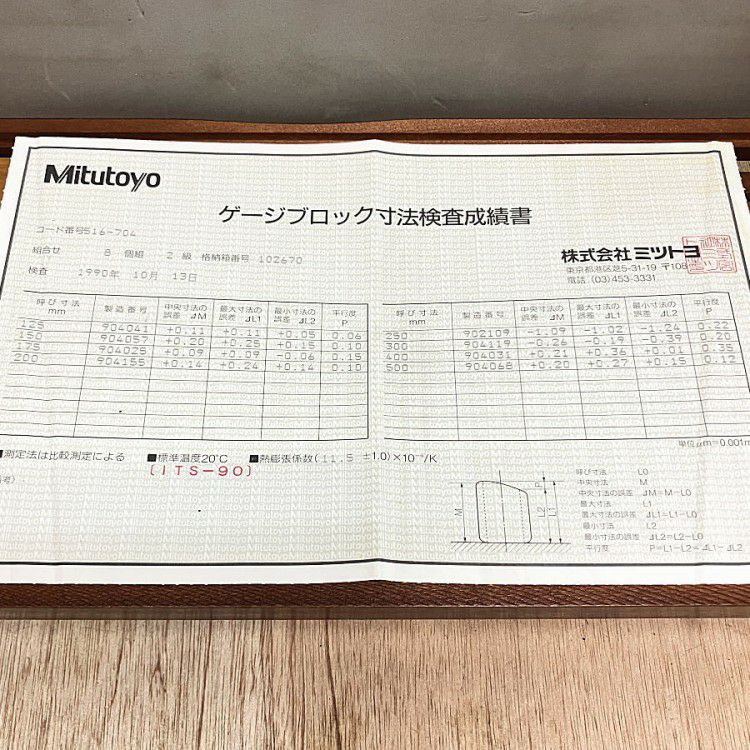 Mitutoyo
ゲージブロック寸法検査成績書
コード番号516-704
組合せ 8 個組 2 級 格納箱番号 102670
検査 1990年 10月 13日
株式会社 ミツトヨ
東京都港区芝5-31-19 〒108
電話 (03)453-3331
呼び寸法 mm 製造番号 中央寸法の誤差 ⊿M 最大寸法の誤差 ⊿L1 最小寸法の誤差 ⊿L2 平行度 P
125 904041 +0.11 +0.11 +0.05 0.06
150 904057 +0.20 +0.25 +0.15 0.10
175 904025 +0.09 +0.09 -0.06 0.15
200 904155 +0.14 +0.24 +0.14 0.10
呼び寸法 mm 製造番号 中央寸法の誤差 ⊿M 最大寸法の誤差 ⊿L1 最小寸法の誤差 ⊿L2 平行度 P
250 902109 -1.09 -1.02 -1.24 0.22
300 904119 -0.26 -0.19 -0.39 0.20
400 904031 +0.21 +0.36 +0.01 0.35
500 904068 +0.20 +0.27 +0.15 0.12
単位μm=0.001m
■測定法は比較測定による ■標準温度20℃ ■熱膨張係数(11.5 ±1.0)×10⁻⁶/K
[ITS-90]
考)
M P L2 L1
呼び寸法 L0
中央寸法 M
中央寸法の誤差 ⊿M=M-L0
最大寸法 L1
最大寸法の誤差 ⊿L1=L1-L0
最小寸法 L2
最小寸法の誤差 ⊿L2=L2-L0
平行度 P=L1-L2=⊿L1-⊿L2